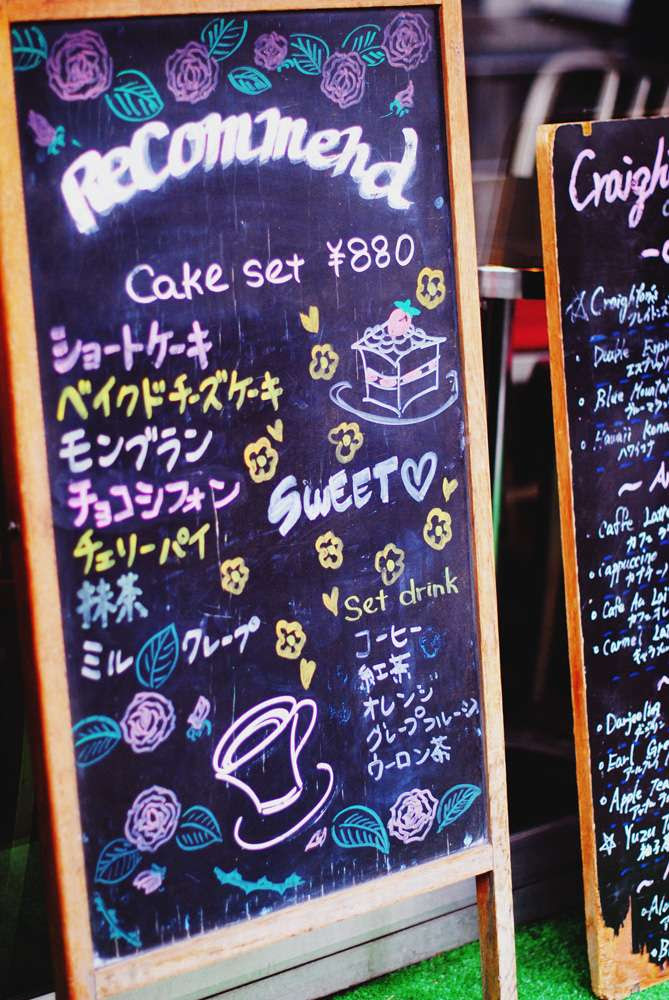 Recommend
Cake set ¥880
ショートケーキ
ベイクドチーズケーキ
モンブラン
チョコシフォン
チェリーパイ
抹茶
ミルクレープ
SWEET
Set drink
コーヒー
紅茶
オレンジ
グレープフルーツ
ウーロン茶
Craigh
Craighton's
ブレイト
Double Esp
エスプレッ
Blue Mountai
ブルーマウン
Hawaii Kona
ハワイコナ
Caffe Latte
カフェラテ
Cappuccino
カプチーノ
Cafe Au Lai
カフェオ
Caramel La
キャラメル
Darjeeling
Earl Gr
アールグレイ
Apple Tea
アップル
Yuzu T
柚子茶